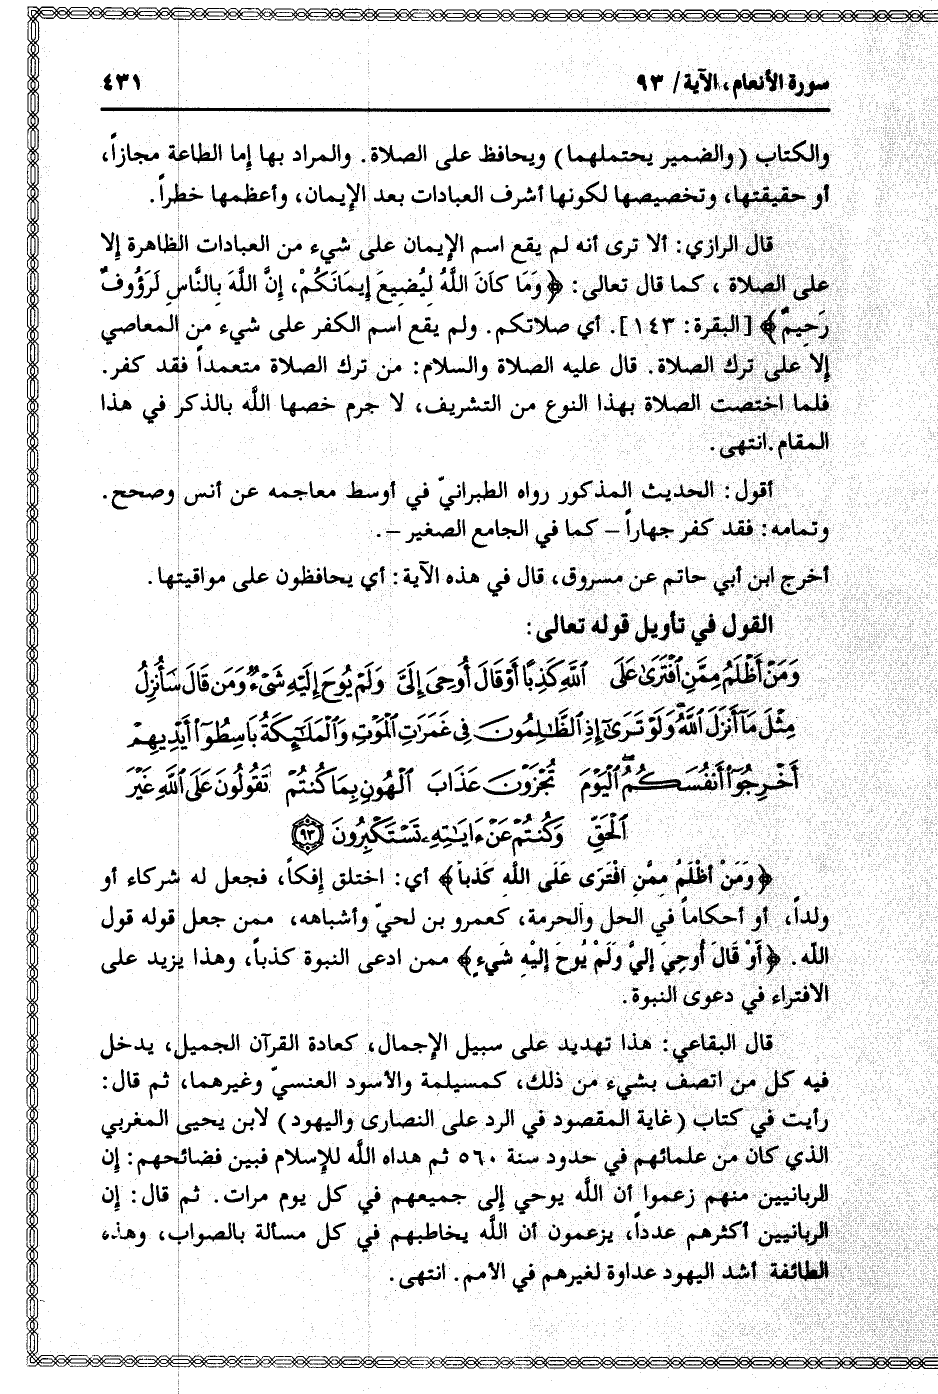 سورة الأنعام، الآية/ ٩٣
٤٣١
والكتاب (والضمير يحتملهما) ويحافظ على الصلاة. والمراد بها إما الطاعة مجازاً،
أو حقيقتها، وتخصيصها لكونها أشرف العبادات بعد الإيمان، وأعظمها خطراً.
قال الرازي: ألا ترى أنه لم يقع اسم الإيمان على شيء من العبادات الظاهرة إلا
على الصلاة، كما قال تعالى: ﴿وَمَا كَانَ اللَّهُ لِيُضِيعَ إِيمَانَكُمْ، إِنَّ اللَّهَ بِالنَّاسِ لَرَؤُوفٌ
رَحِيمٌ﴾ [البقرة: ١٤٣]. أي صلاتكم. ولم يقع اسم الكفر على شيء من المعاصي
إلا على ترك الصلاة. قال عليه الصلاة والسلام: من ترك الصلاة متعمداً فقد كفر.
فلما اختصت الصلاة بهذا النوع من التشريف، لا جرم خصها اللَّه بالذكر في هذا
المقام.انتهى.
أقول: الحديث المذكور رواه الطبرانيّ في أوسط معاجمه عن أنس وصحح.
وتمامه: فقد كفر جهاراً – كما في الجامع الصغير –.
أخرج ابن أبي حاتم عن مسروق، قال في هذه الآية: أي يحافظون على مواقيتها.
القول في تأويل قوله تعالى:
وَمَنْ أَظْلَمُ مِمَّنِ ٱفْتَرَىٰ عَلَى ٱللَّهِ كَذِبًا أَوْ قَالَ أُوحِىَ إِلَىَّ وَلَمْ يُوحَ إِلَيْهِ شَىْءٌ وَمَن قَالَ سَأُنزِلُ
مِثْلَ مَآ أَنزَلَ ٱللَّهُ وَلَوْ تَرَىٰٓ إِذِ ٱلظَّٰلِمُونَ فِى غَمَرَٰتِ ٱلْمَوْتِ وَٱلْمَلَٰٓئِكَةُ بَاسِطُوٓا۟ أَيْدِيهِمْ
أَخْرِجُوٓا۟ أَنفُسَكُمُ ۖ ٱلْيَوْمَ تُجْزَوْنَ عَذَابَ ٱلْهُونِ بِمَا كُنتُمْ تَقُولُونَ عَلَى ٱللَّهِ غَيْرَ
ٱلْحَقِّ وَكُنتُمْ عَنْ ءَايَٰتِهِۦ تَسْتَكْبِرُونَ ٩٣
﴿وَمَنْ أَظْلَمُ مِمَّنِ افْتَرَى عَلَى اللَّهِ كَذِباً﴾ أي: اختلق إفكاً، فجعل له شركاء أو
ولداً، أو أحكاماً في الحل والحرمة، كعمرو بن لحيّ وأشباهه، ممن جعل قوله قول
اللَّه. ﴿أَوْ قَالَ أُوحِيَ إِلَيَّ وَلَمْ يُوحَ إِلَيْهِ شَيء﴾ ممن ادعى النبوة كذباً، وهذا يزيد على
الافتراء في دعوى النبوة.
قال البقاعي: هذا تهديد على سبيل الإجمال، كعادة القرآن الجميل، يدخل
فيه كل من اتصف بشيء من ذلك، كمسيلمة والأسود العنسيّ وغيرهما، ثم قال:
رأيت في كتاب (غاية المقصود في الرد على النصارى واليهود) لابن يحيى المغربي
الذي كان من علمائهم في حدود سنة ٥٦٠ ثم هداه اللَّه للإسلام فبين فضائحهم: إن
الربانيين منهم زعموا أن اللَّه يوحي إلى جميعهم في كل يوم مرات. ثم قال: إن
الربانيين أكثرهم عدداً، يزعمون أن اللَّه يخاطبهم في كل مسألة بالصواب، وهذه
الطائفة أشد اليهود عداوة لغيرهم في الأمم. انتهى.